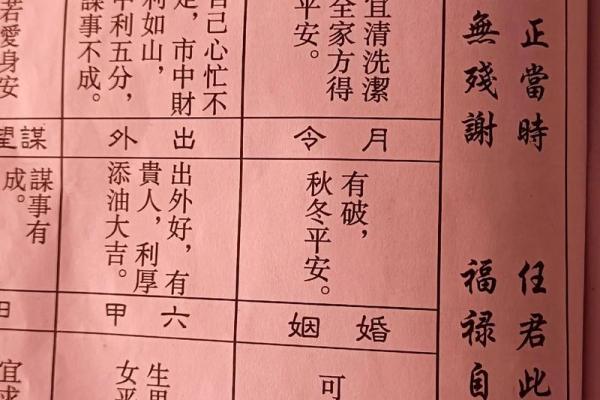 正當時　任君此
無殘謝　福祿自
宜清洗潔
全家方得
平安。
自己心忙不
，市中財
利如山，
中利五分，
謀事不成。
若愛身安
月令
出外
謀望
有破，
秋冬平安。
出外好，有
貴人，利厚
添油大吉。
謀事有
成。
婚姻
六甲
可
生男
女平
宜求